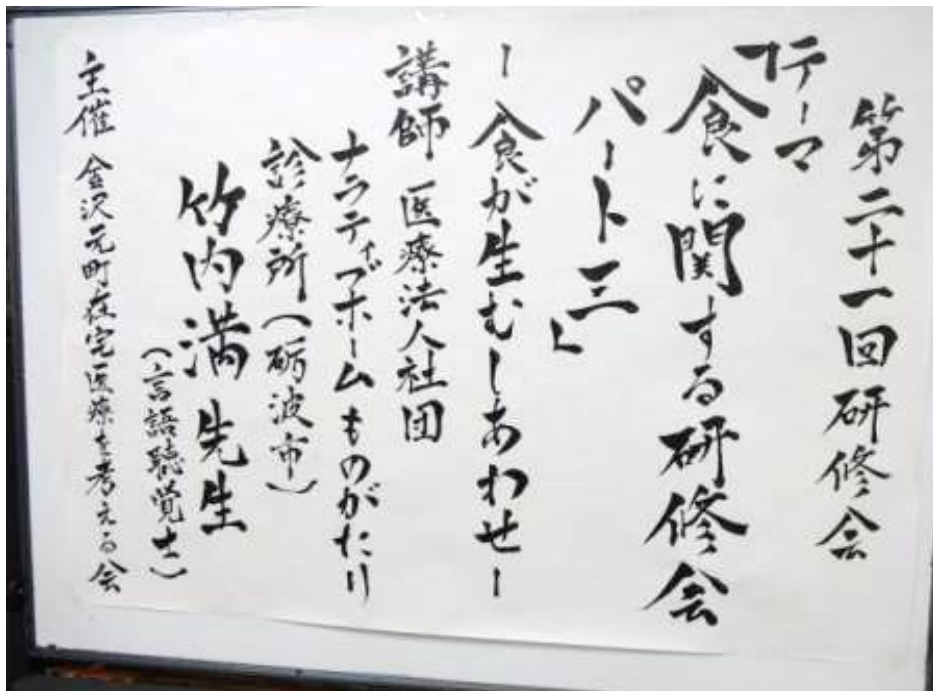 第二十一回研修会
テーマ
「食に関する研修会
パート三」
ー食が生むしあわせー
講師 医療法人社団
ナラティブホームものがたり
診療所(砺波市)
竹内満先生
(言語聴覚士)
主催 金沢元町在宅医療を考える会